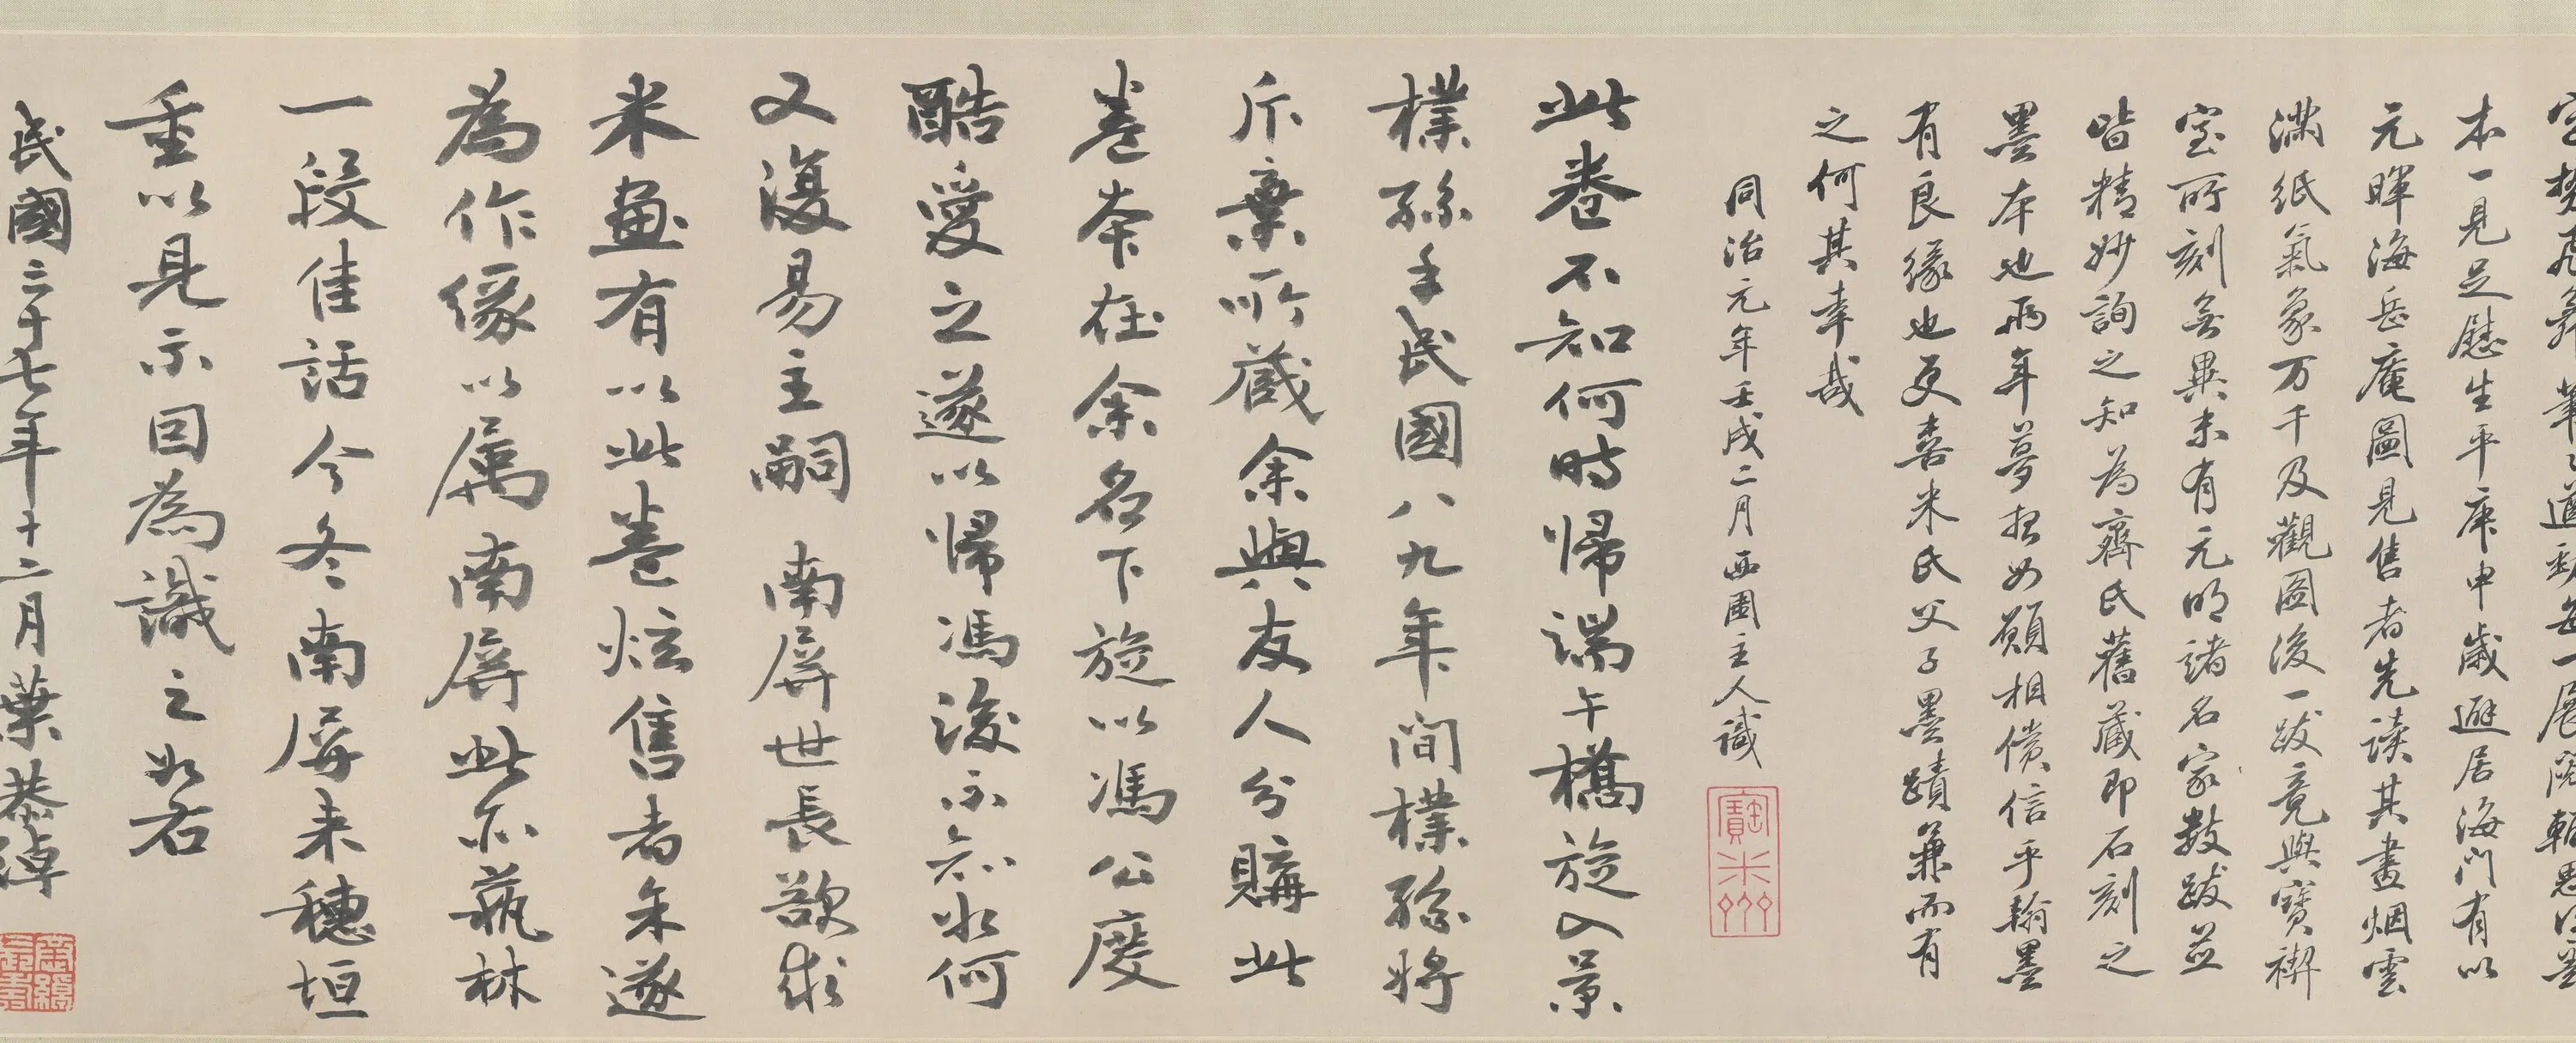 本一見足慰生平庚申歲避居海門有以
元暉海岳庵圖見售者先讀其畫烟雲
滿紙氣象万千及觀圖後一跋竟與寶禊
室所刻無異末有元明諸名家數跋並
皆精妙詢之知為齊氏舊藏即石刻之
墨本也兩年夢想如願相償信乎翰墨
有良緣也更喜米氏父子墨蹟兼而有
之何其幸哉
同治元年壬戌二月西圃主人識
此卷不知何時帰端午橋旋入景
樸孫手民國八九年間樸孫將
斥棄所藏余與友人分購此
卷本在余名下旋以馮公度
酷愛之遂以帰馮後不知如何
又復易主嗣 南屏世長欲求
米畫有以此卷炫售者余遂
為作緣以屬 南屏此亦蓺林
一段佳話今冬南屏来穗垣
重以見示因為識之如右
民國三十七年十二月葉恭綽